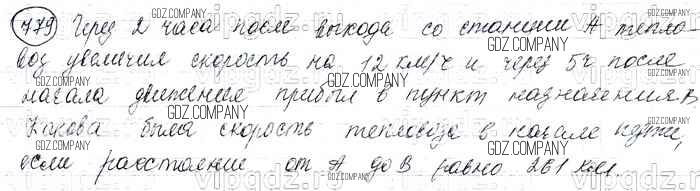 779 Через 2 часа после выхода со станции А тепло-
воз увеличил скорость на 12 км/ч и через 5 ч после
начала движения прибыл в пункт назначения В.
Какова была скорость тепловоза в начале пути,
если расстояние от А до В равно 261 км.
GDZ.COMPANY
vipgdz.ru